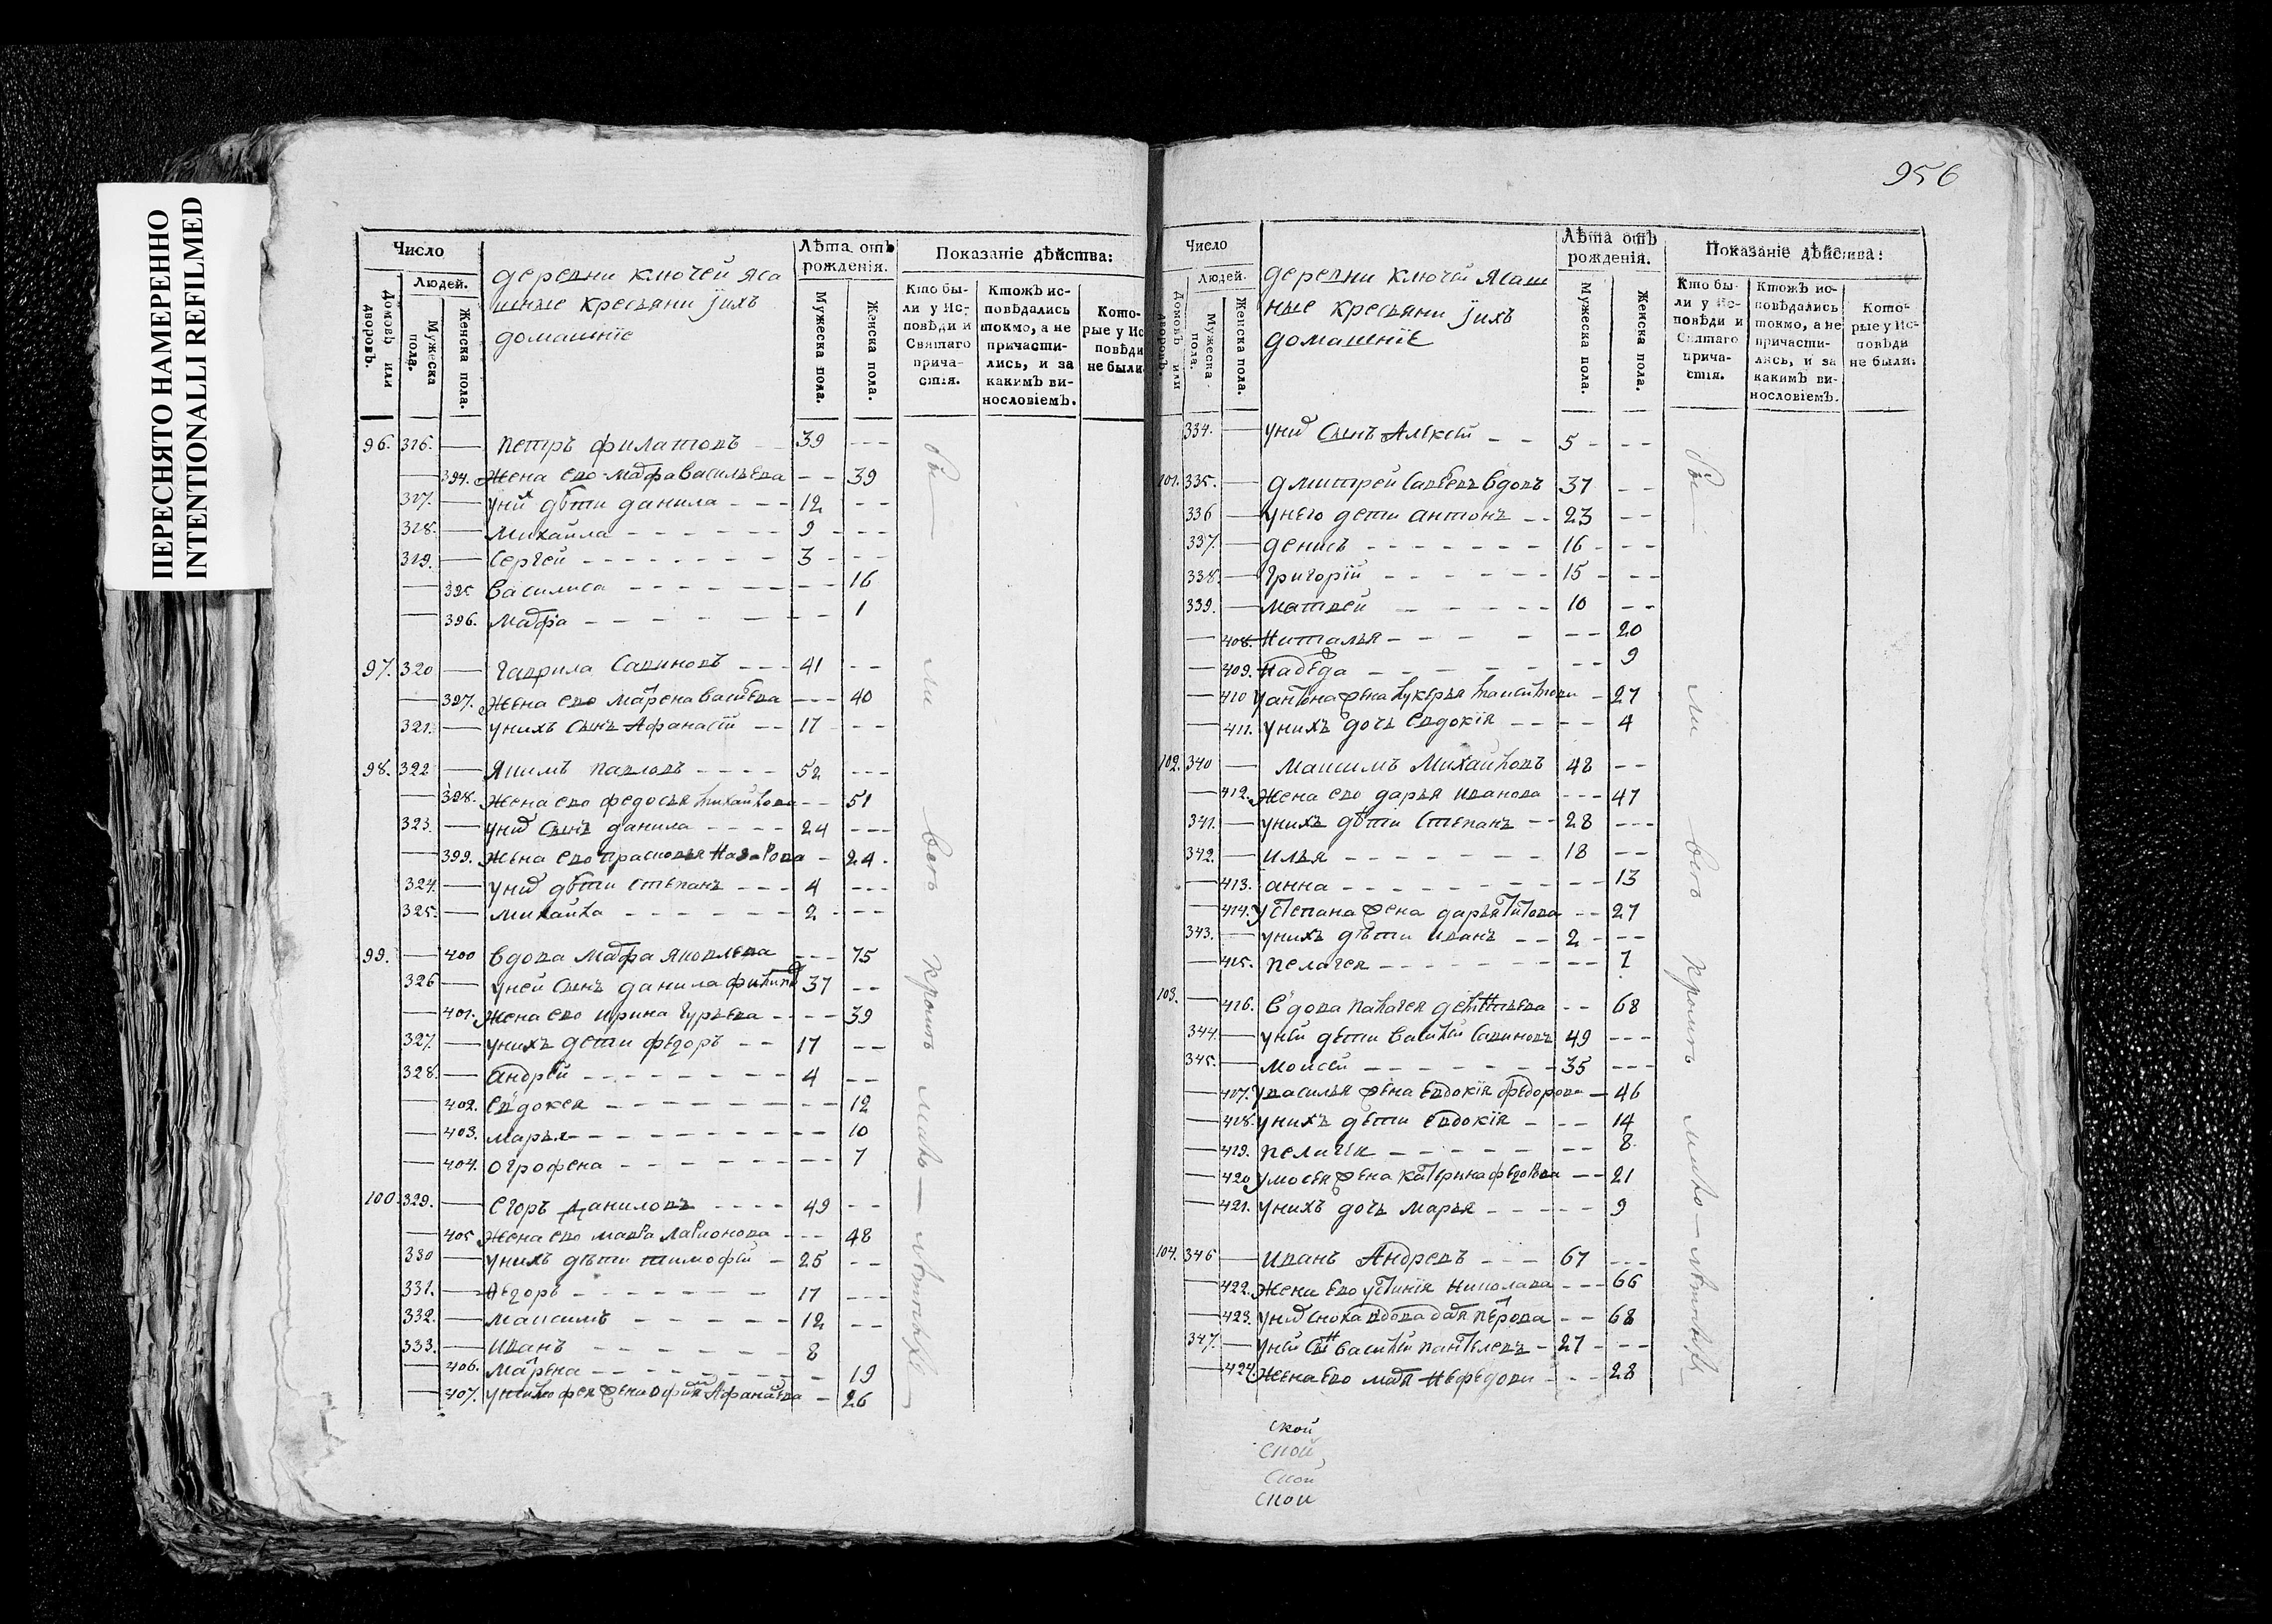 ПЕРЕСНЯТО НАМЕРЕННО
INTENTIONALLI REFILMED
Число
Людей.
Домовъ или дворовъ.
Мужеска пола.
Женска пола.
деревни ключей яса
шные кресьяни јихъ
домашніе
Лѣта отъ рожденія.
Мужеска пола.
Женска пола.
Показаніе дѣйства:
Кто бы-
ли у Ис-
повѣди и
Святаго
прича-
стія.
Ктожъ ис-
повѣдались
токмо, а не
причасти-
лись, и за
какимъ ви-
нословіемъ.
Кото-
рые у Ис
повѣди
не были
96. 316. — петръ филатовъ 39
— 394. Жена ево мафра васильева 39
317. — унй дѣти данила 12
318. — михайла 9
319. — Сергей 3
— 395 василиса 16
— 396. мафра 1
97. 320 — гаврила Савиновъ 41
— 397. Жена ево марена 40
321. — унихъ сынъ Афанасій 17
98. 322 — якимъ павловъ 52
— 398. Жена ево федосья михайлова 51
323. — сынъ данила 24
— 399. Жена ево прасковья назарова 24
324. — дѣти степанъ 4
325. — михайла 2
99. — 400 вдова мафра яковлева 75
326 — уней сынъ данила филипо 37
— 401. Жена ево ирина гурьева 39
327. — унихъ дети федоръ 17
328. — андрей 4
— 402. евдокея 12
— 403. марья 10
— 404. огрофена 7
100. 329. — егоръ даниловъ 49
— 405 Жена ево мавра ларионова 48
330 — унихъ дѣти тимофей 25
331. — федоръ 17
332. — максимъ 12
333. — иванъ 8
— 406. марена 19
— 407. жена Афанасева 26
бы — ли всѣ кромѣ мало — лѣтныхъ
956
Число
Людей.
Домовъ или дворовъ.
Мужеска пола.
Женска пола.
деревни ключей ясаш
ные кресьяни јихъ
домашніе
Лѣта отъ рожденія.
Мужеска пола.
Женска пола.
Показаніе дѣйства:
Кто бы-
ли у Ис-
повѣди и
Святаго
прича-
стія.
Ктожъ ис-
повѣдались
токмо, а не
причасти-
лись, и за
какимъ ви-
нословіемъ.
Кото-
рые у Ис-
повѣди
не были.
334. — сынъ Алексей 5
101. 335. — дмитрей савеевъ вдовъ 37
336 — унего дети антонъ 23
337. — денисъ 16
338. — григорій 15
339. — матвей 10
— 408. Наталья 20
— 409. надежда 9
— 410 уантона жена лукерья 27
— 411. унихъ дочь евдокія 4
102. 340 — максимъ михайловъ 48
— 412. Жена ево дарья иванова 47
341. — унихъ дѣти степанъ 28
342. — илья 18
— 413. анна 13
— 414. устепана жена дарья титова 27
343. — унихъ дѣти иванъ 2
— 415. пелагея 1
103. — 416. вдова палагея деметьева 68
344. — уней дѣти василей савиновъ 49
345. — моисей 35
— 417. увасилья жена евдокія федорова 46
— 418. унихъ дѣти евдокія 14
— 419. пелагея 8
— 420 умосея жена катерина федорова 21
— 421. унихъ дочь марья 9
104. 346 — иванъ Андревъ 67
— 422. Жена ево устинія николава 66
— 423. сноха вдова петрова 68
347. — уней василей пантелевъ 27
— 424. Жена ево нефедова 28
бы — ли всѣ кромѣ мало — лѣтныхъ
ской
ской
ской
ской